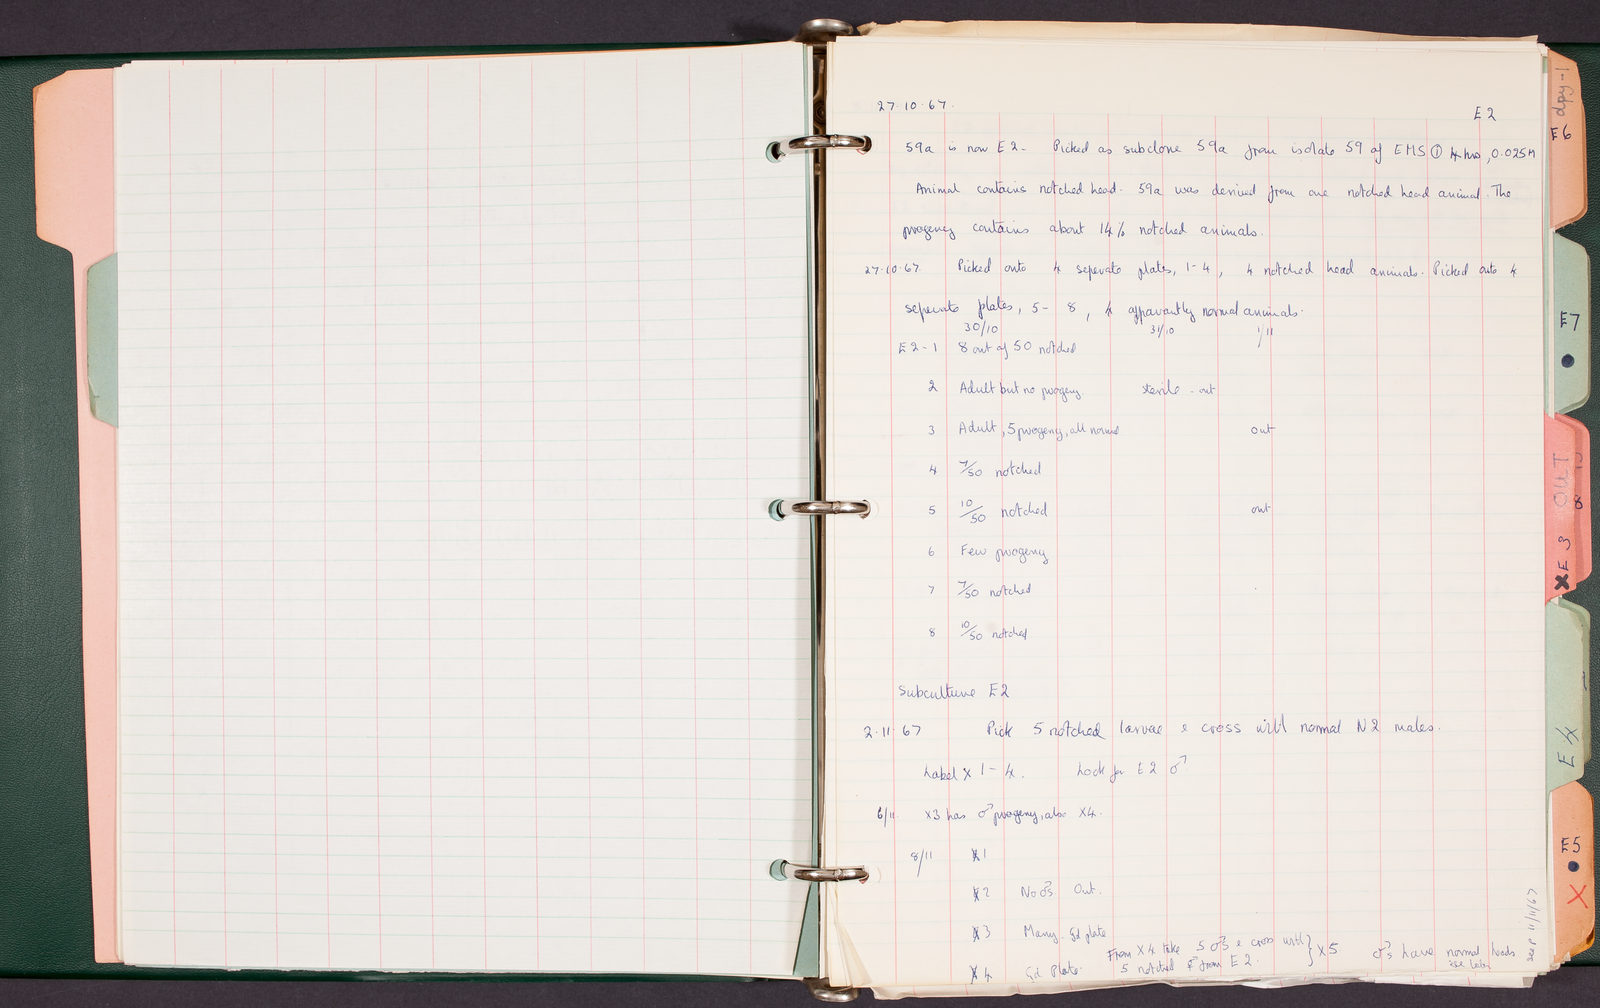 27.10.67.
E2
59a is now E2 - Picked as subclone 59a from isolate 59 of EMS ① 4 hrs, 0.025M
Animal contains notched head. 59a was derived from one notched head animal. The
progeny contains about 14% notched animals.
27.10.67. Picked onto 4 seperate plates, 1-4, 4 notched head animals. Picked onto 4
seperate plates, 5 - 8, 4 apparantly normal animals.
30/10 31/10 1/11
E2-1 8 out of 50 notched
2 Adult but no progeny. sterile - out
3 Adult, 5 progeny, all normal out
4 7/50 notched
5 10/50 notched out
6 Few progeny
7 7/50 notched
8 10/50 notched
Subculture E2
2.11.67 Pick 5 notched larvae & cross with normal N2 males.
Label X 1 - 4. Look for E2 ♂
6/11. X3 has ♂ progeny, also X4.
8/11 X1
X2 No ♂s Out.
X3 Many. Gd plate
X4 Gd Plate.
From X4 take 5 ♂s & cross with
5 notched ☿ from E2. } X5 ♂s have normal heads
see later
see p 11/11/67
dpy-1
E6
E7
OUT
8
XE3
E4
E5
X